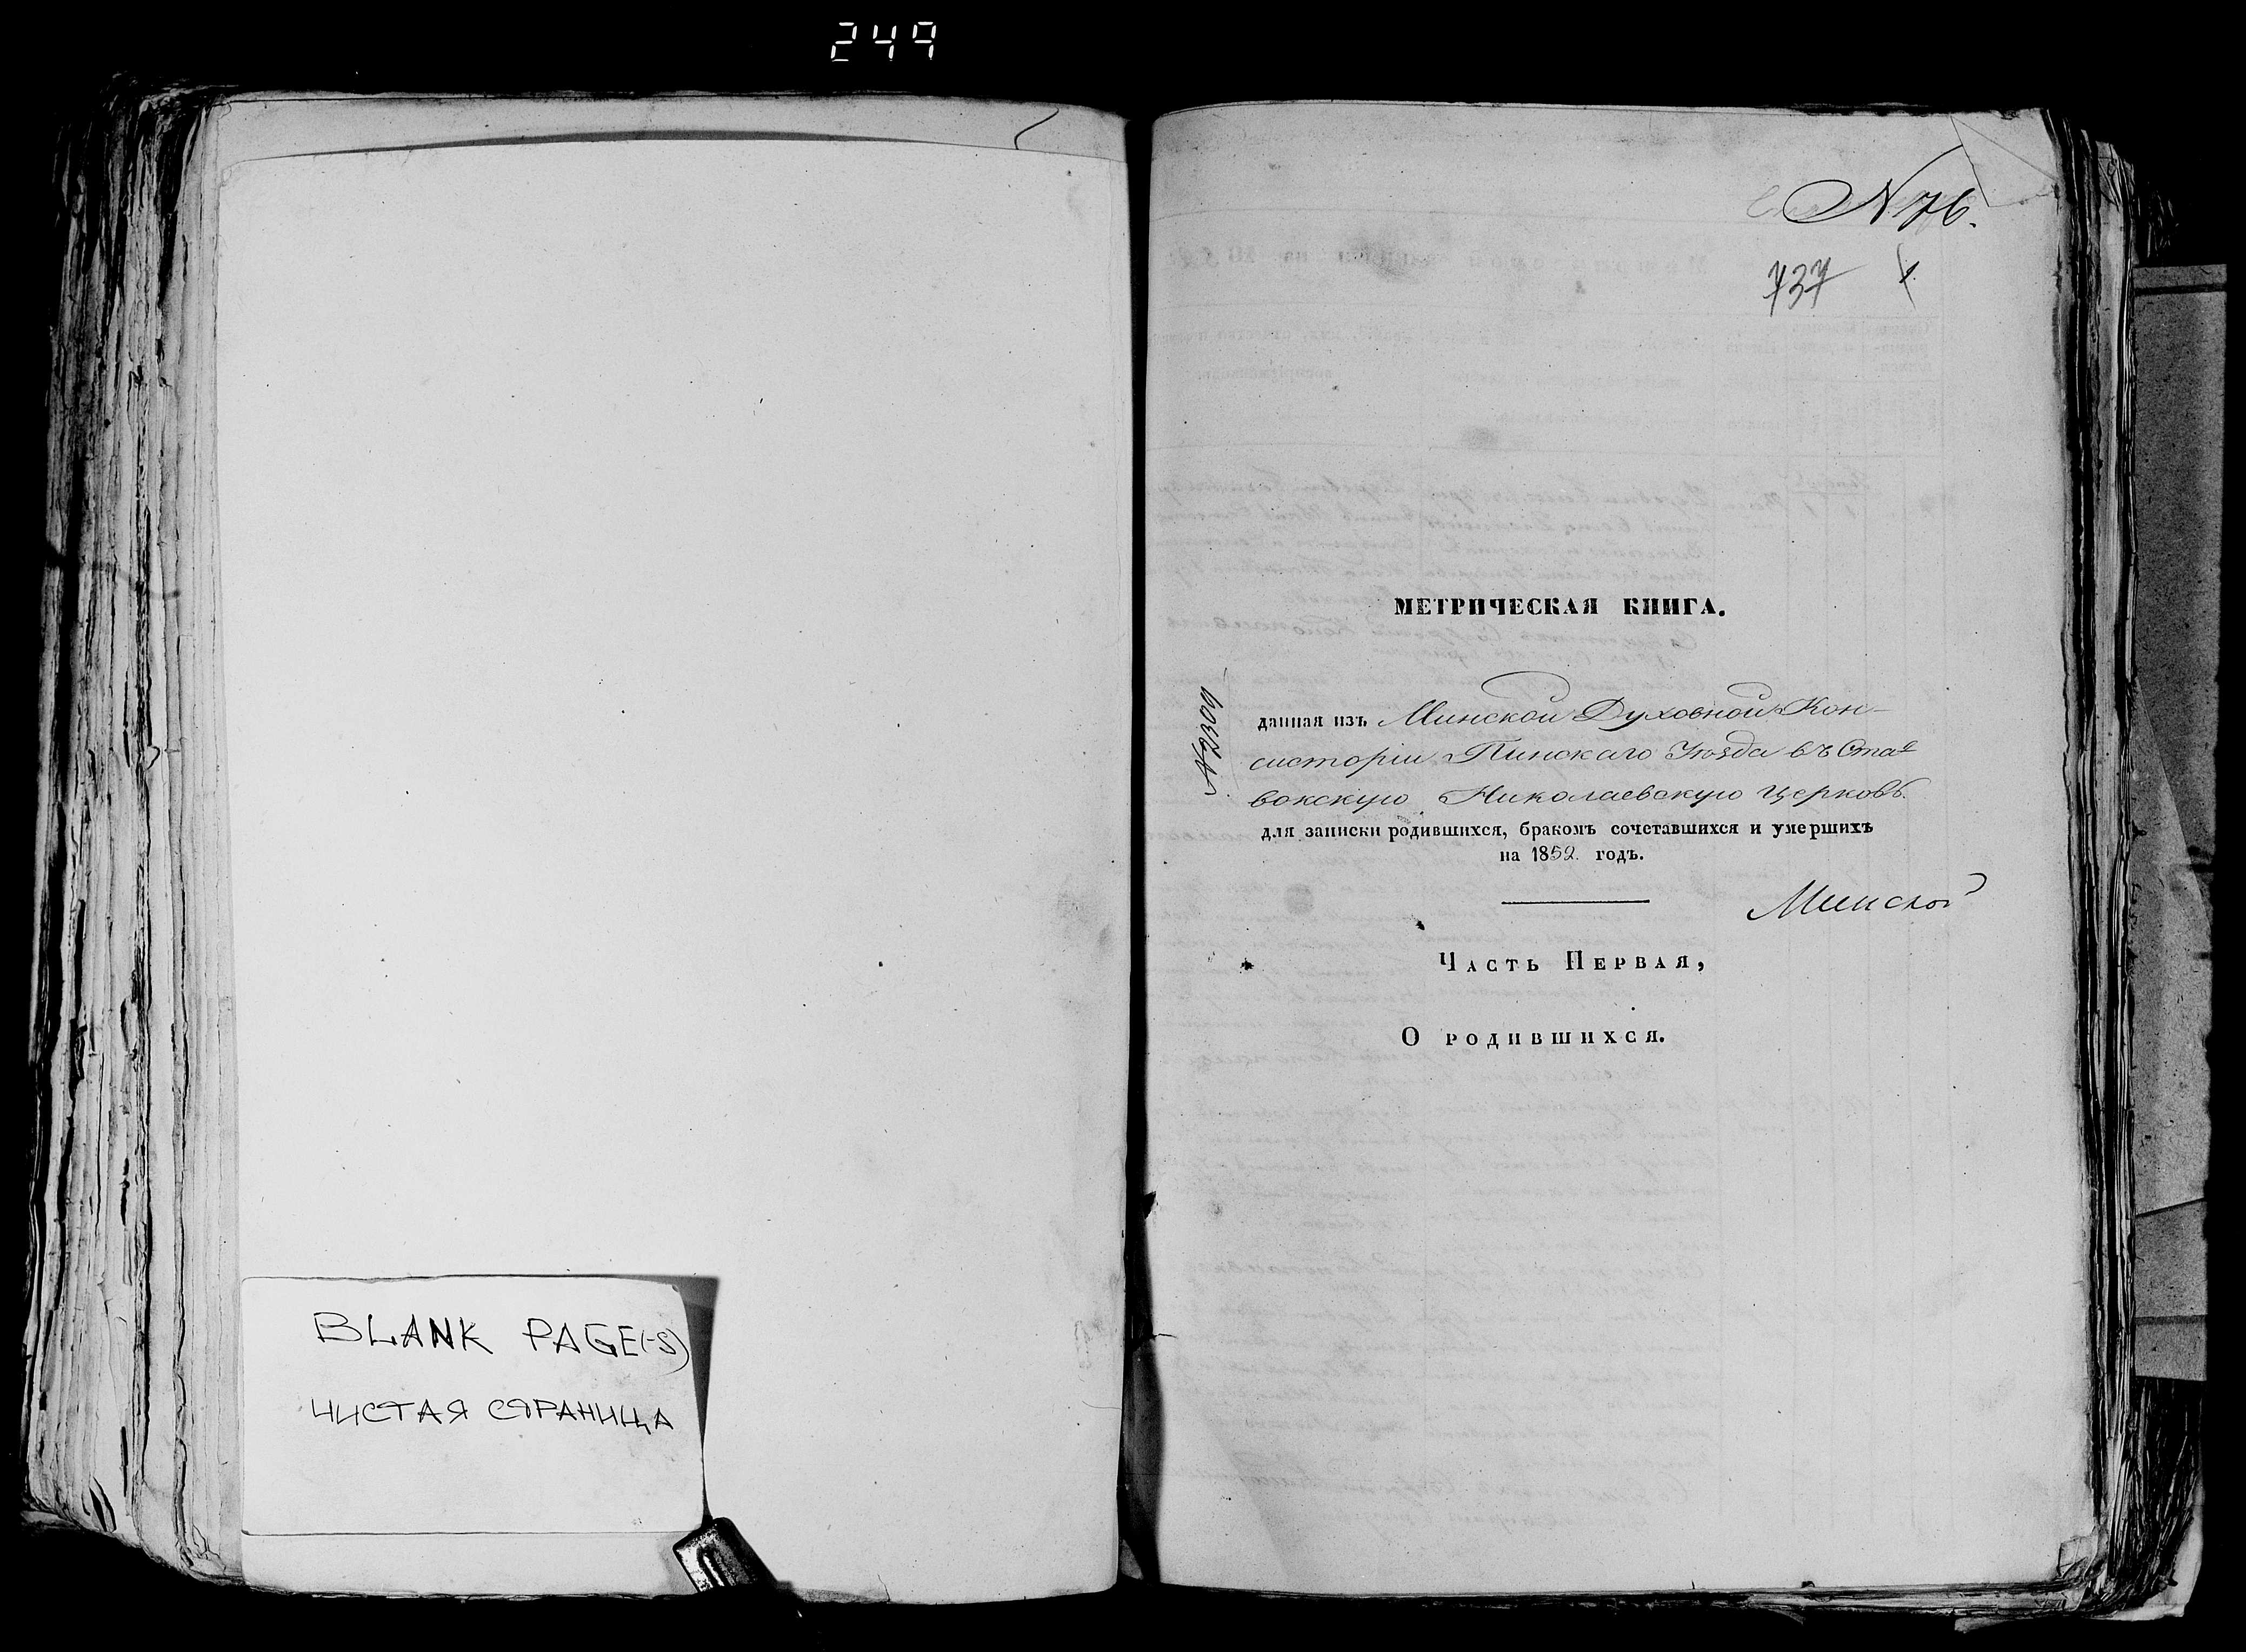 249
BLANK PAGE(-S)
ЧИСТАЯ СТРАНИЦА
N 76.
737
МЕТРИЧЕСКАЯ КНИГА.
N 2309
данная изъ Минской Духовной Кон-
систоріи Пинскаго Уѣзда въ Ста-
вокскую Николаевскую церковь.
для записки родившихся, бракомъ сочетавшихся и умершихъ
на 1852 годъ.
Минской
Часть Первая,
О родившихся.